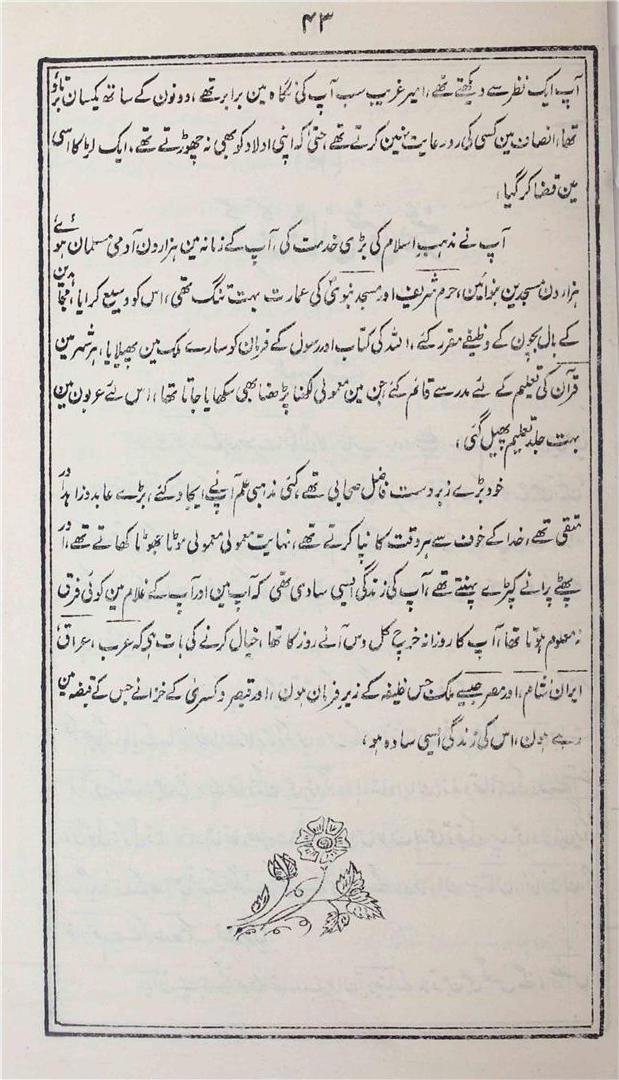 ۴۳
آپ ایک نظر سے دیکھتے تھے، امیر غریب سب آپ کی نگاہ مین برابر تھے، دونون کے ساتھ یکسان برتاؤ
تھا، انصاف مین کسی کی رو رعایت نہین کرتے تھے، حتیٰ کہ اپنی اولاد کو بھی نہ چھوڑتے تھے، ایک لڑکا اسی
مین قضا کر گیا،
آپ نے مذہب اسلام کی بڑی خدمت کی، آپ کے زمانہ مین ہزارون آدمی مسلمان ہوئے
ہزارون مسجدین بنوائین، حرم شریف اور مسجد نبوی کی عمارت بہت تنگ تھی، اس کو وسیع کرایا، مجاہدین
کے بال بچون کے وظیفے مقرر کئے، اللہ کی کتاب اور رسول کے فرمان کو سارے ملک مین پھیلایا، ہر شہر مین
قرآن کی تعلیم کے لئے مدرسے قائم کئے جن مین معمولی لکھنا پڑھنا بھی سکھایا جاتا تھا، اس لئے عربون مین
بہت جلد تعلیم پھیل گئی،
خود بڑے زبردست فاضل صحابی تھے، کئی مذہبی علم آپنے ایجاد کئے، بڑے عابد و زاہد اور
متقی تھے، خدا کے خوف سے ہر وقت کانپا کرتے تھے، نہایت معمولی معمولی موٹا جھوٹا کھاتے تھے، اور
پھٹے پرانے کپڑے پہنتے تھے، آپ کی زندگی ایسی سادی تھی کہ آپ مین اور آپ کے غلام مین کوئی فرق
نہ معلوم ہوتا تھا، آپ کا روزانہ خرچ کل دس آنے روز کا تھا، خیال کرنے کی بات ہی کہ عرب، عراق،
ایران، شام، اور مصر جیسے ملک جس خلیفہ کے زیر فرمان ہون، اور قیصر و کسریٰ کے خزانے جس کے قبضہ مین
رہے ہون، اس کی زندگی ایسی سادہ ہو،